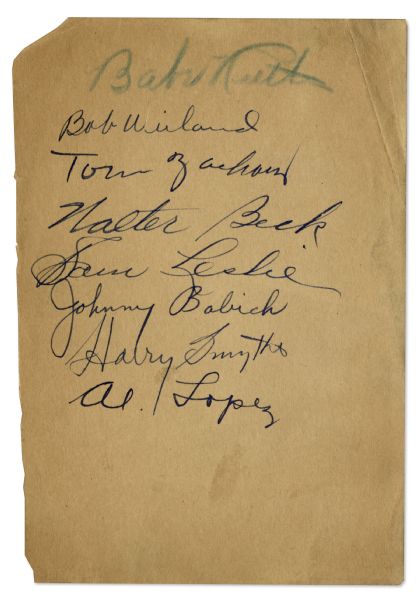 Babe Ruth
Bob Weiland
Tom Zachary
Walter Beck
Sam Leslie
Johnny Babich
Harry Smythe
Al. Lopez